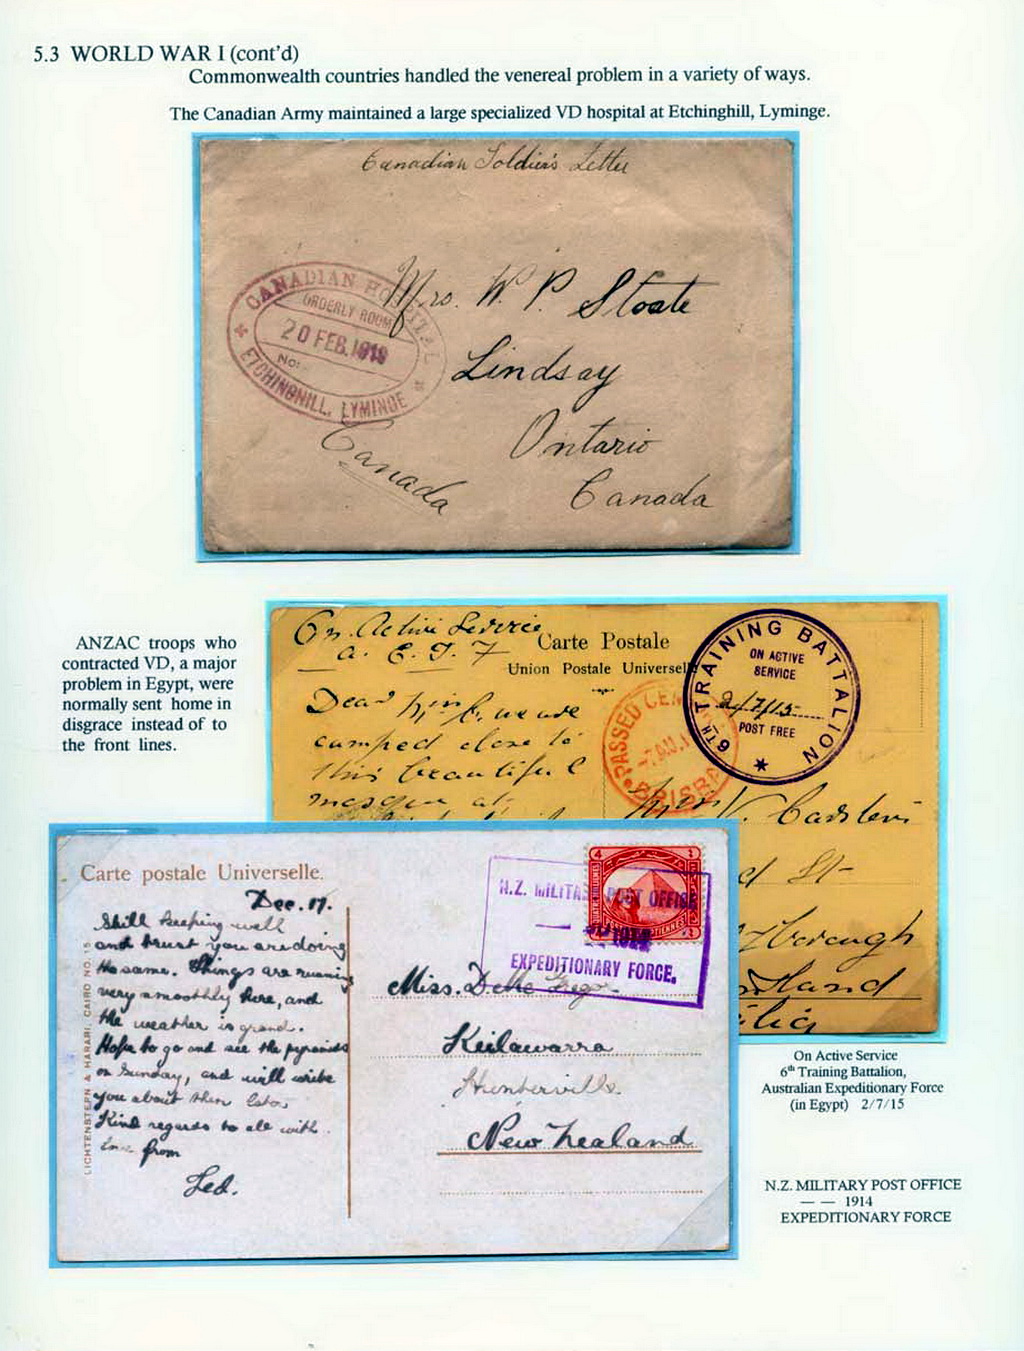 5.3 WORLD WAR I (cont'd)
Commonwealth countries handled the venereal problem in a variety of ways.
The Canadian Army maintained a large specialized VD hospital at Etchinghill, Lyminge.
Canadian Soldier's Letter
CANADIAN HOSPITAL
ORDERLY ROOM
20 FEB. 1919
No:
ETCHINGHILL, LYMINGE
Mrs. W. P. Stoate
Lindsay
Ontario
Canada
Canada
ANZAC troops who
contracted VD, a major
problem in Egypt, were
normally sent home in
disgrace instead of to
the front lines.
On Active Service
Carte Postale
Union Postale Universell
6TH TRAINING BATTALION
ON ACTIVE
SERVICE
2/7/15
POST FREE
PASSED CEN
BRISBA
Dear
we are
camped close to
this beautiful
mosque at
V.
St
land
Carte postale Universelle.
Dec. 17.
Still keeping well
and trust you are doing
the same. Things are running
very smoothly here, and
the weather is grand.
Hope to go and see the pyramids
on Sunday, and will write
you about them later
Kind regards to all with
love from
Ted.
LICHTENSTERN & HARARI, CAIRO NO. 15
4
N.Z. MILITARY POST OFFICE
1914
EXPEDITIONARY FORCE.
Miss. D Gregor
Keilawarra
Hunterville
New Zealand
On Active Service
6th Training Battalion,
Australian Expeditionary Force
(in Egypt) 2/7/15
N.Z. MILITARY POST OFFICE
— — 1914
EXPEDITIONARY FORCE